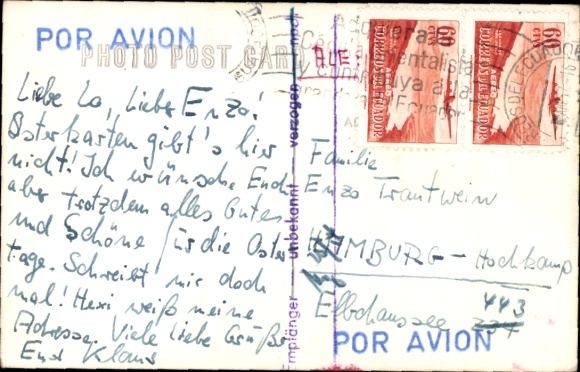 POR AVION
PHOTO POST CARD
Liebe Lo, Lieber Enzo!
Osterkarten gibt's hier
nicht! Ich wünsche Euch
aber trotzdem alles Gutes
und Schöne für die Oster
tage. Schreibt mir doch
mal! Hexi weiß meine
Adresse. Viele liebe Grüße
Euer Klaus
Empfänger unbekannt verzogen nach
60 CTVS
AEREO
CORREOS DEL ECUADOR
60
AEREO
CORREOS DEL ECUADOR
Familie
Enzo Trautwein
HAMBURG - Hochkamp
Elbchaussee
443
POR AVION